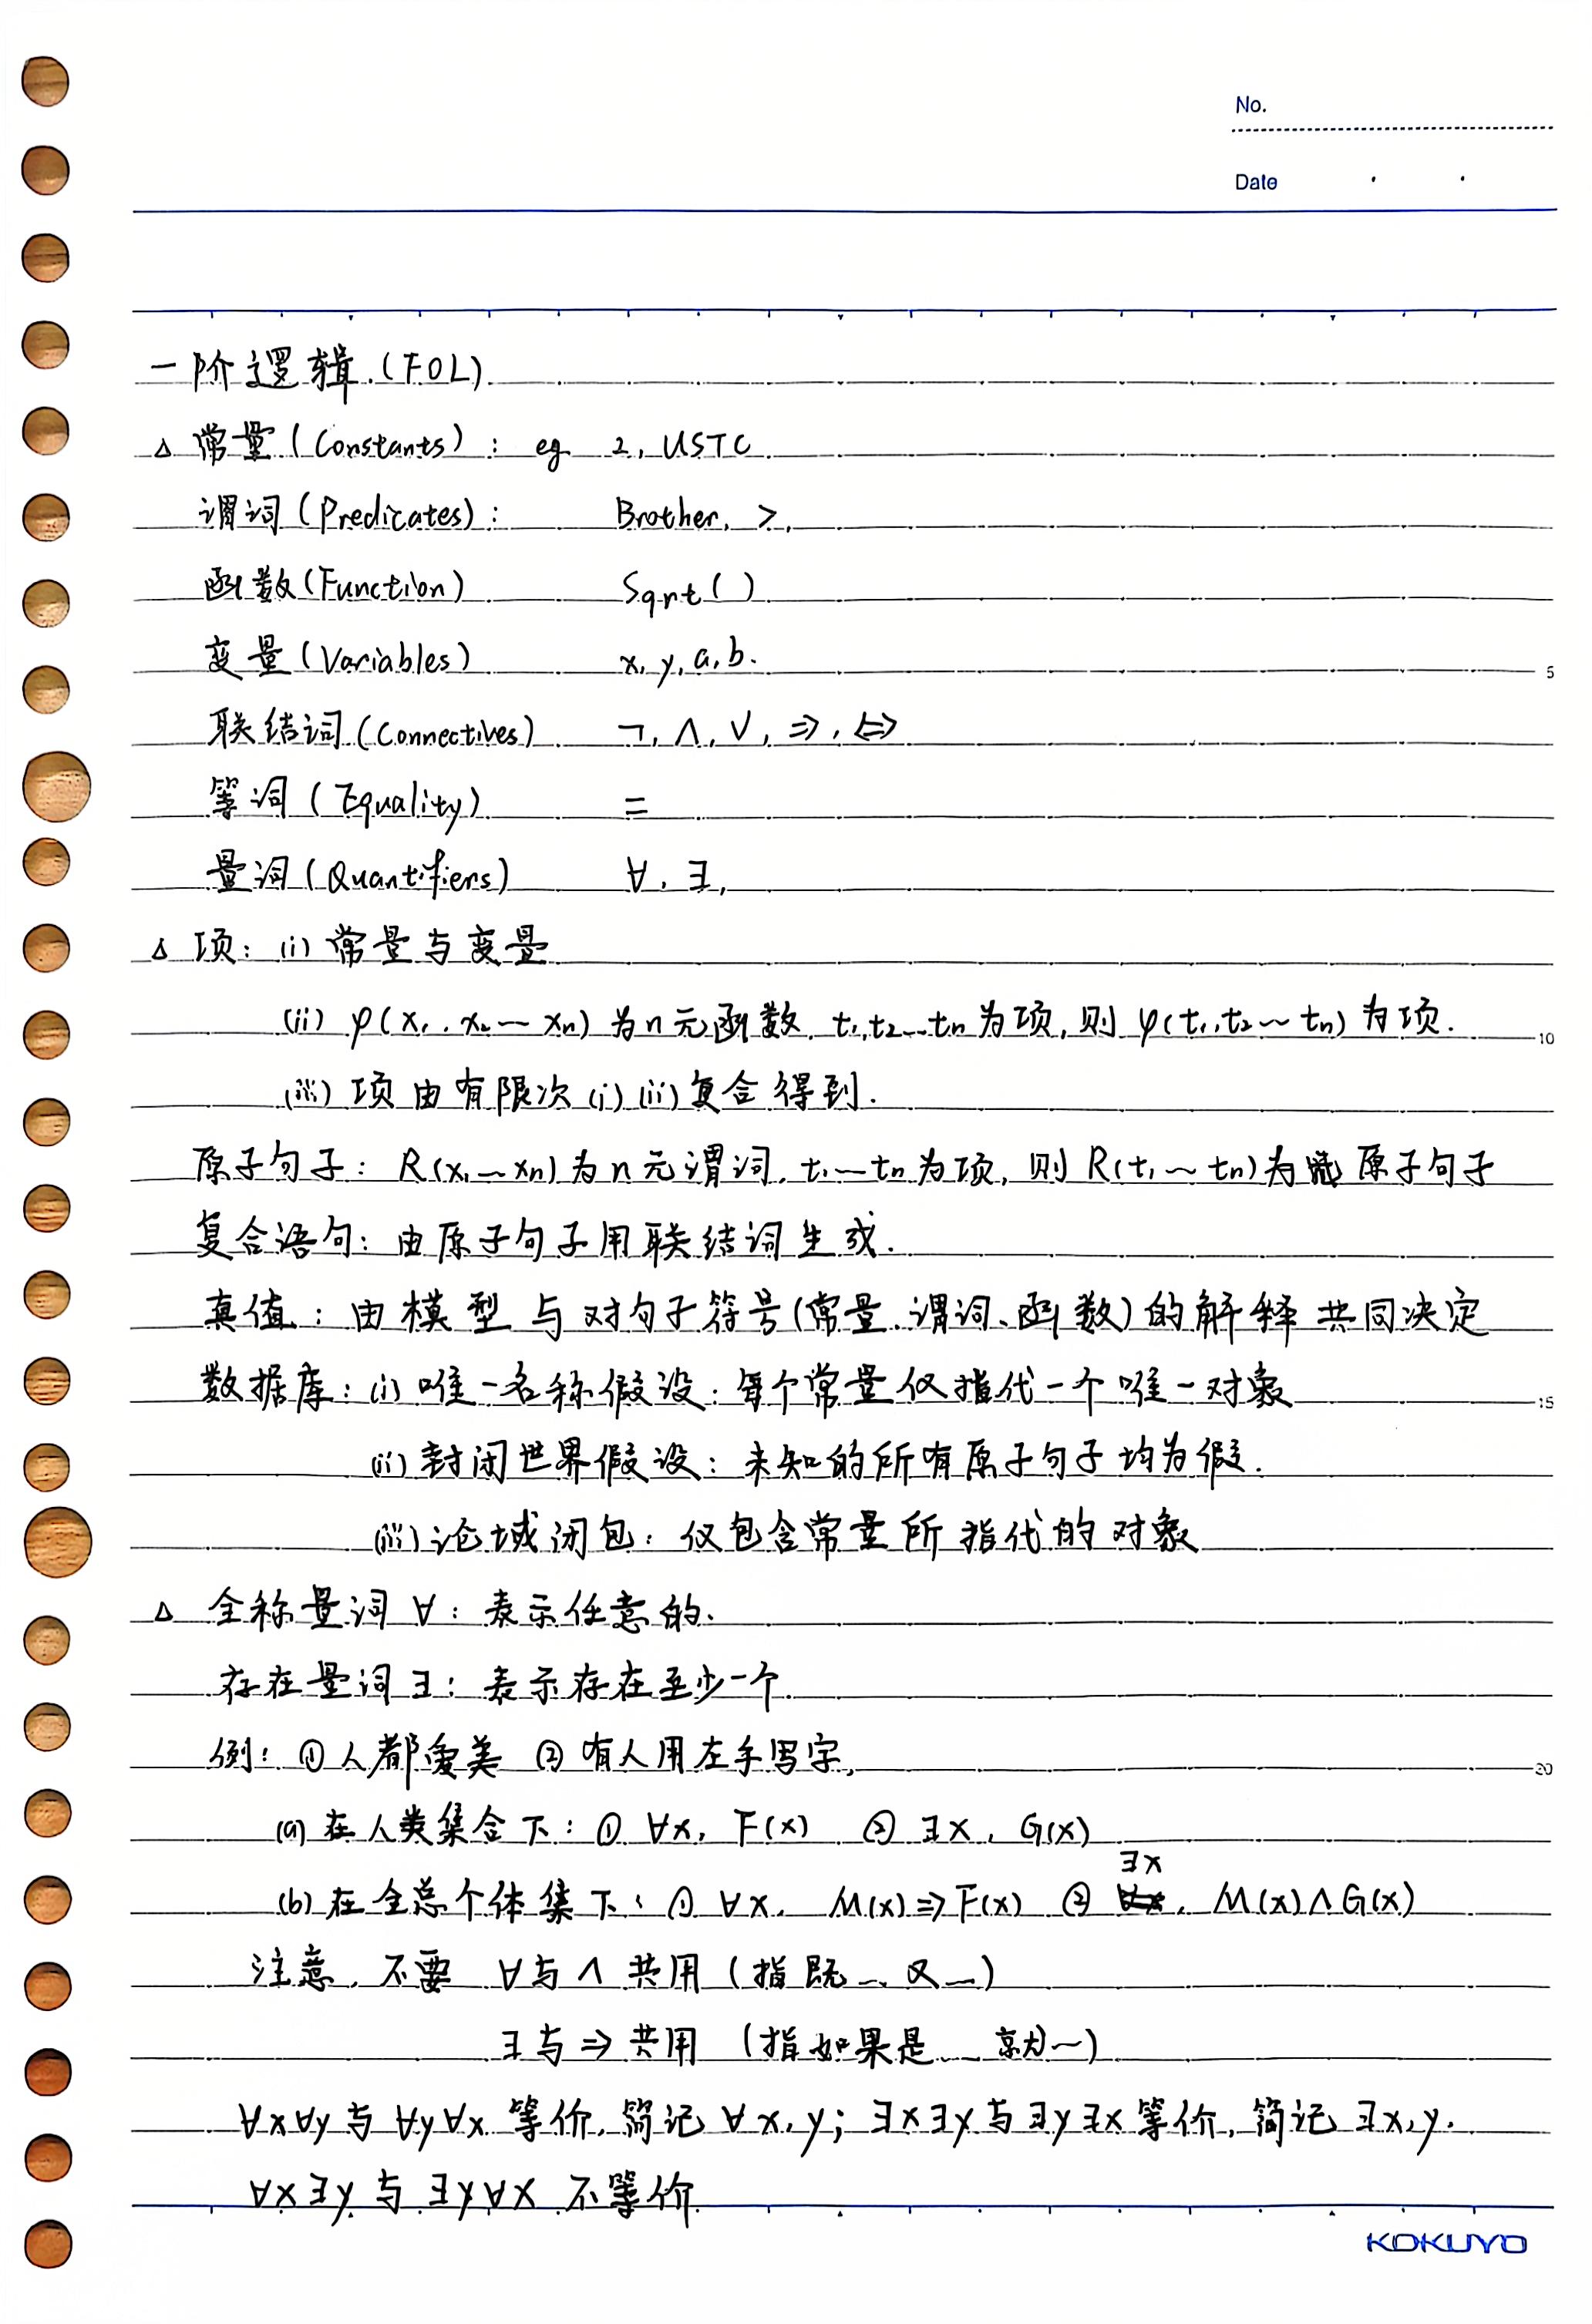 No.
Date
一阶逻辑.(FOL)
△ 常量(Constants): eg 2, USTC
谓词(Predicates): Brother, >,
函数(Function) Sqrt( )
变量(Variables) x, y, a, b.
5
联结词(Connectives) ¬, ∧, ∨, ⇒, ⇔
等词(Equality) =
量词(Quantifiers) ∀, ∃,
△ 项: (i) 常量与变量
(ii) φ(x₁, x₂…xₙ)为n元函数, t₁,t₂…tₙ为项, 则 φ(t₁,t₂…tₙ)为项.
10
(iii) 项由有限次(i)(ii)复合得到.
原子句子: R(x₁…xₙ)为n元谓词, t₁…tₙ为项, 则R(t₁…tₙ)为原子句子
复合语句: 由原子句子用联结词生成.
真值: 由模型与对句子符号(常量、谓词、函数)的解释共同决定
数据库: (i) 唯一名称假设: 每个常量仅指代一个唯一对象
15
(ii) 封闭世界假设: 未知的所有原子句子均为假.
(iii) 论域闭包: 仅包含常量所指代的对象
△ 全称量词∀: 表示任意的.
存在量词∃: 表示存在至少一个
例: ①人都爱美 ②有人用左手写字,
20
(a) 在人类集合下: ① ∀x, F(x) ② ∃x, G(x)
(b) 在全总个体集下: ① ∀x, M(x)⇒F(x) ② ∃x, M(x)∧G(x)
注意, 不要 ∀与∧共用(指既…又…)
∃与⇒共用 (指如果是…就…)
∀x∀y与∀y∀x等价, 简记∀x,y; ∃x∃y与∃y∃x等价, 简记∃x,y.
∀x∃y与∃y∀x不等价
KOKUYO